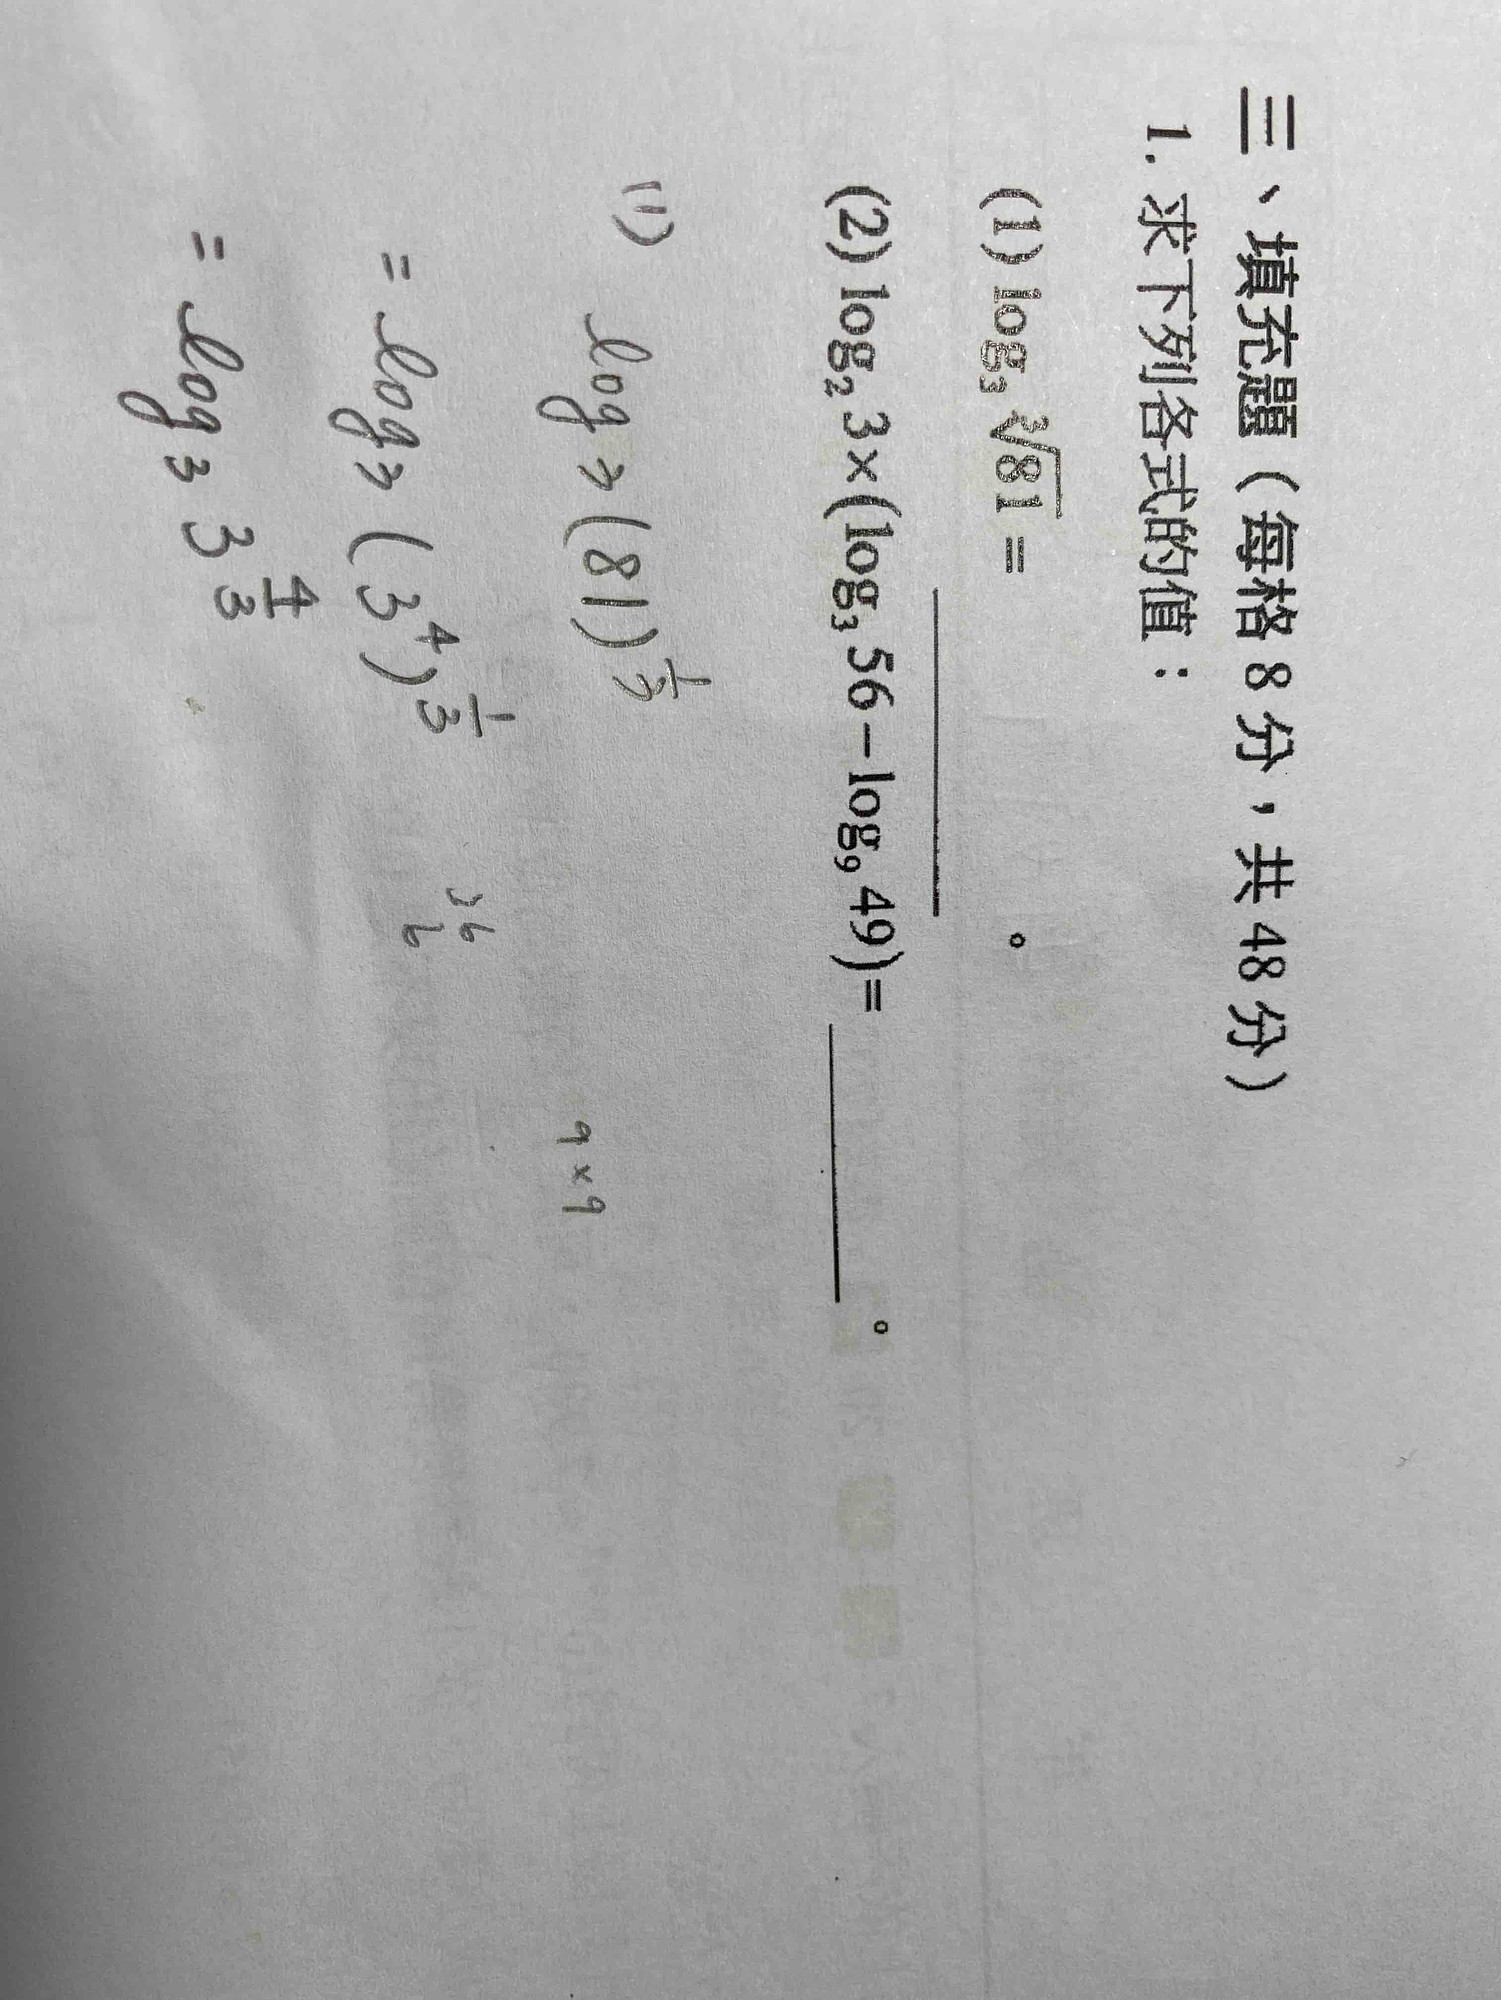 三、填充題（每格 8 分，共 48 分）
1. 求下列各式的值：
(1) log₃ ∛81 = ________。
(2) log₂ 3×(log₃ 56－log₉ 49)= ________。
(1) log₃ (81)^(1/3)
= log₃ (3⁴)^(1/3)
= log₃ 3^(4/3)
9×9